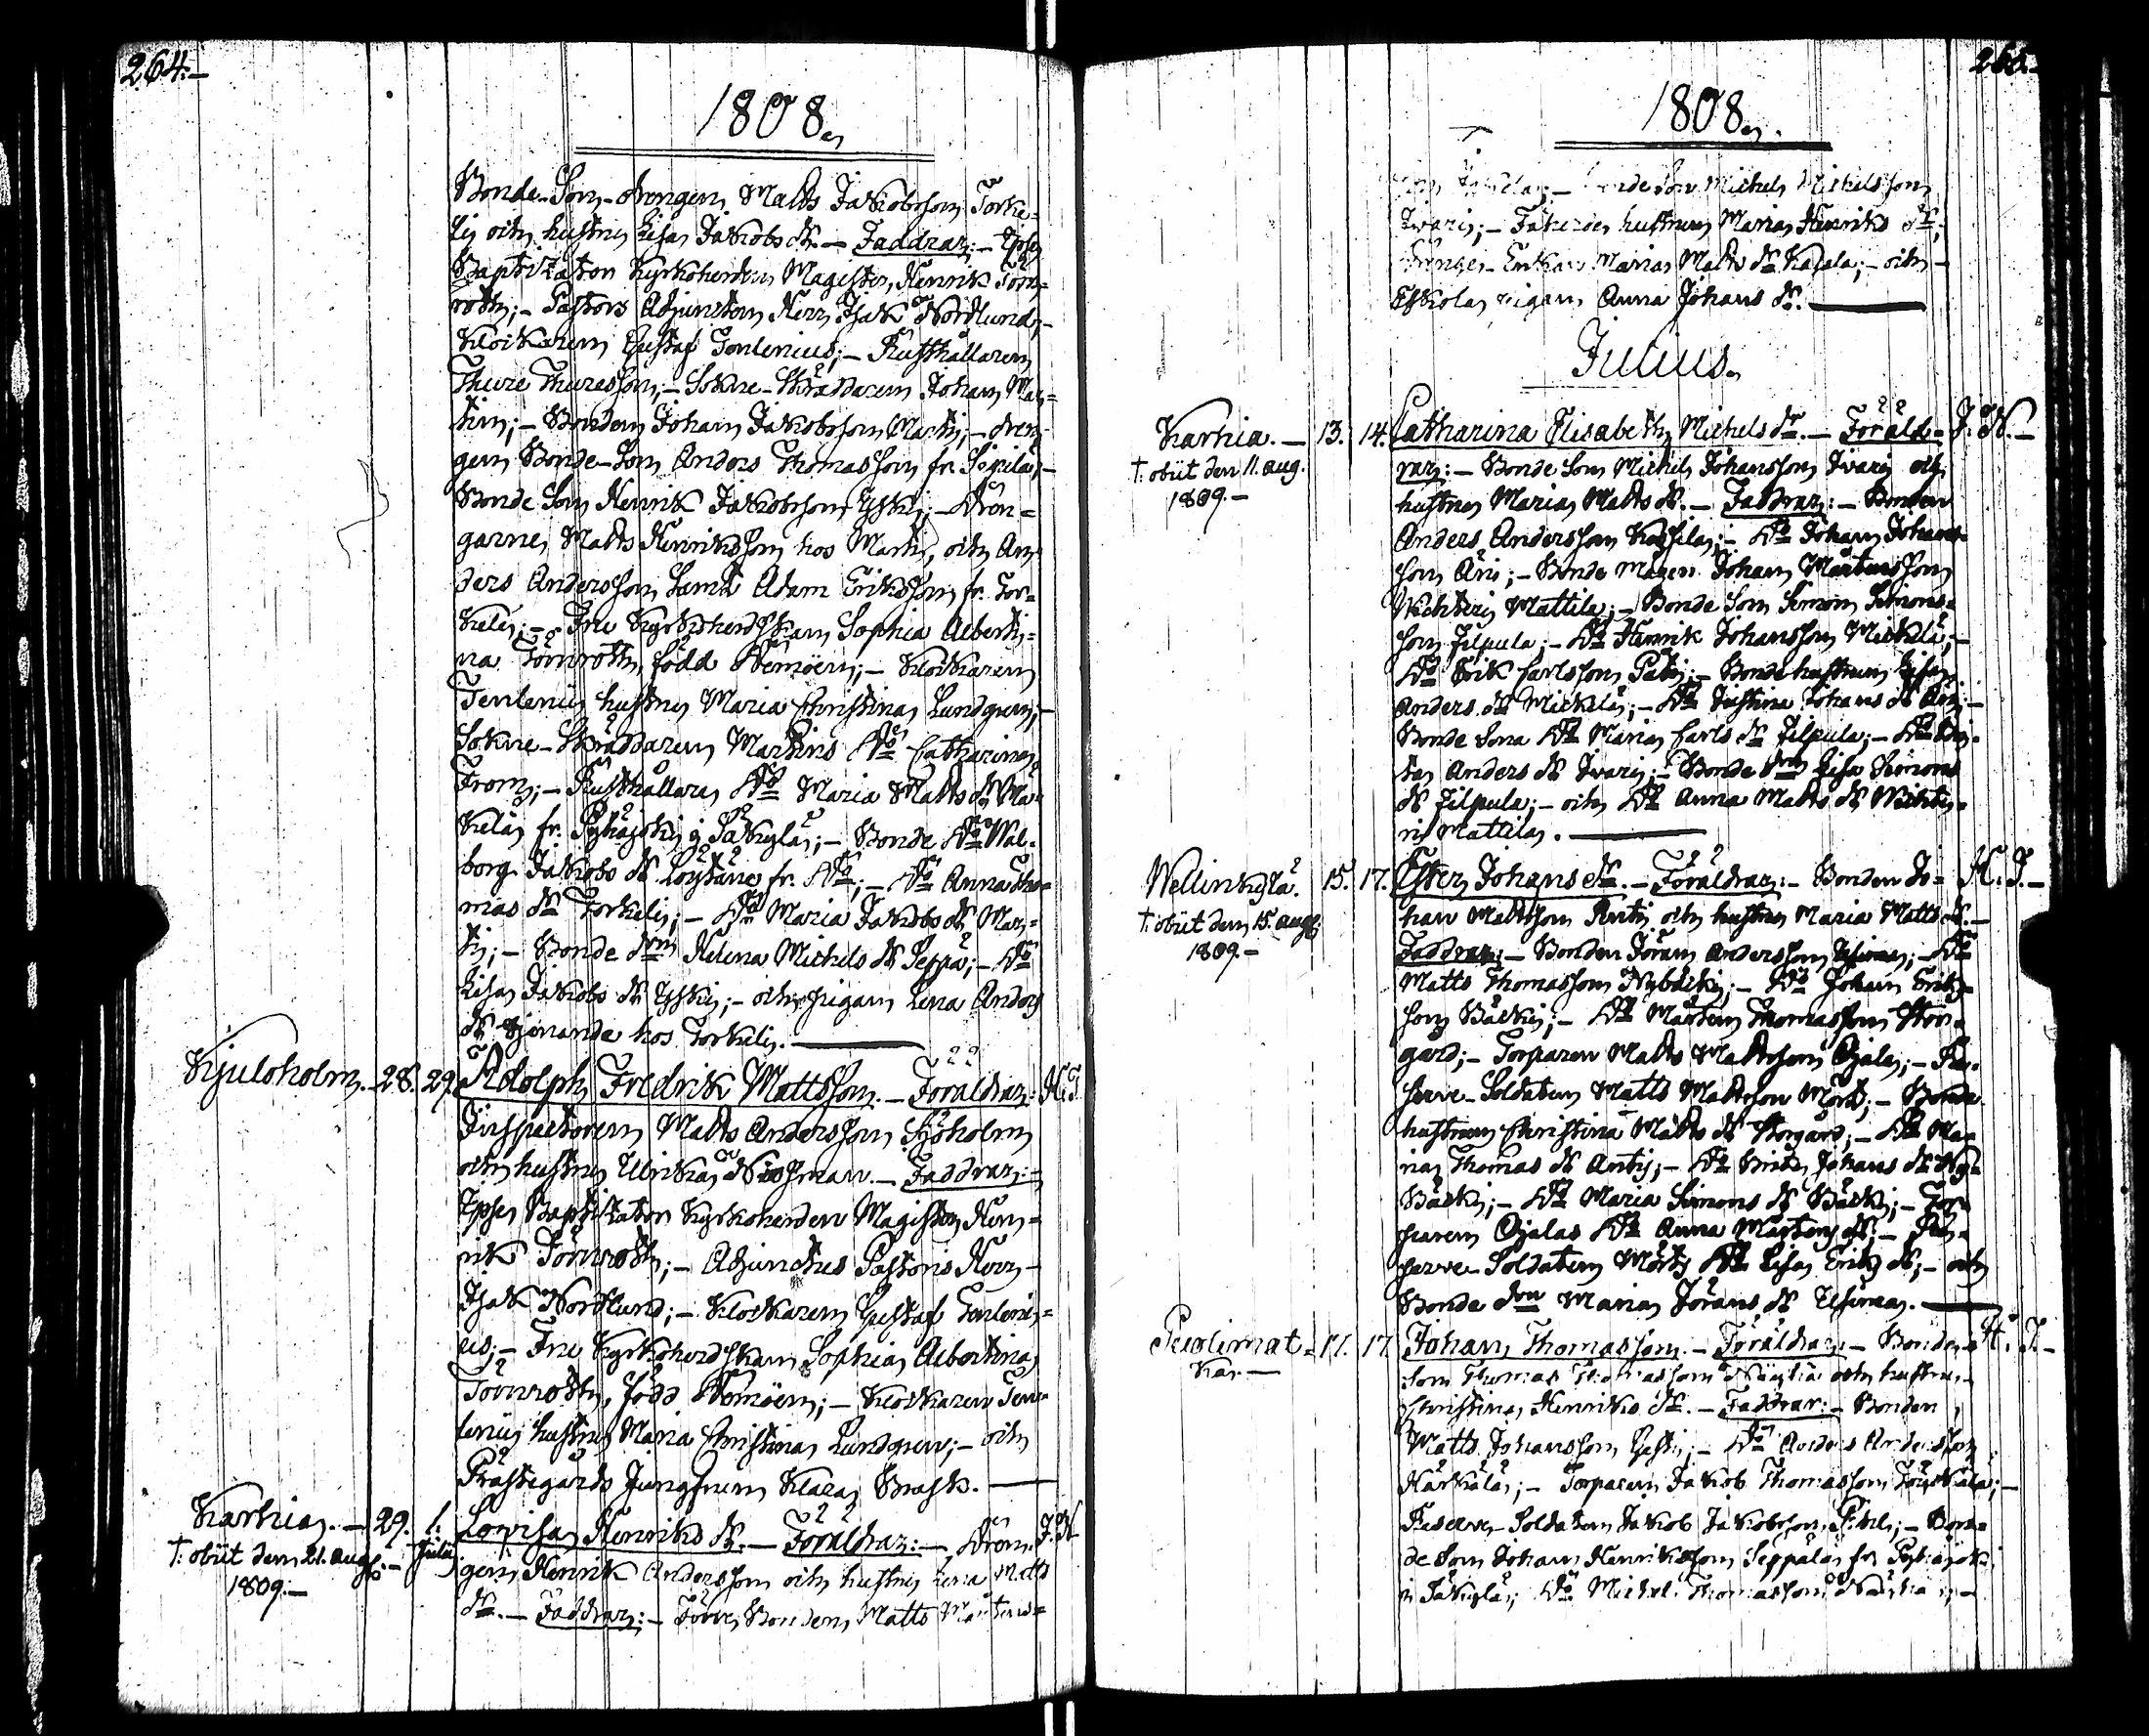 264.-
1808.
Bonde-Son-drengen Matts Jakobsson Torke=
li och hustru Lisa Jakobs dr. - Faddrar: - Ipse
Baptizator Kyrkoherden Magister Henrik Törn=
roth; - Pastors Adjuncten Herr Isak Nordlund; -
Klockaren Gustaf Tenlenius; - Rusthållaren
Thure Thuresson; - Sokne-Skräddaren Johan Mar=
tin; - Bonden Johan Jakobsson Martti; - dren
gen Bonde-Son Anders Thomasson fr. Sipilä; -
Bonde Son Henrik Jakobsson Yski; - Drän=
garne Matts Henriksson hos Martti, och An
ders Andersson samt Adam Eriksson fr. Tor=
kela; - Fru Kyrkoherdskan Sophia Alberti=
na Törnroth, född Nemöen; - Klockaren
Tenlenii hustru Maria Christina Lundgren; -
Sokne-Skräddaren Martins Do Catharina
From; - Rusthållare Do Maria Matts dr Ma=
kelä fr. Pyhäjoki i Säkylä; - Bonde Do Wal=
borg Jakobs dr Löytäne fr. Do; - Do Anna Tho=
mas dr Torkeli; - Do Maria Jakobs dr Mar=
ti; - Bonde drn Helena Michels dr Seppä; - Do
Lisa Jakobs dr Yski; - och pigan Lena Anders
dr tjenande hos Torkeli.
Kjuloholm. - 28. 29. Adolph Fredrik Mattsson. - Föräldrar: H.T.
Inspectoren Matts Andersson Sjöholm
och hustru Ulrika Rosman. - Faddrar: -
Ipse Baptizator Kyrkoherden Magister Hen=
rik Törnroth; - Adjunctus Pastoris Herr
Isak Nordlund; - Klockaren Gustaf Tenleni=
us; - Fru Kyrkoherdskan Sophia Albertina
Törnroth, född Nemöen; - Klockaren Ten=
lenii hustru Maria Christina Lundgren; - och
Prästegårds Jungfrun Klara Brask.
Karhia. - 29. 1. Lovisa Henriks dr. - Föräldrar: - Drän= J.N.
†: obiit den 21. aug. - Julii gen Henrik Andersson och hustru Lena Matts
1809. - dr. - Faddrar: - Förre Bonden Matts Mårtens=
265.-
1808.
Bonde Son Michel Michelsson
Ivari; - hustrun Maria Henriks dr;
Enkan Maria Matts dr Kaila; - och
Eskola pigan Anna Johans dr.
Julius.
Karhia. - 13. 14. Catharina Elisabeth Michels dr. - Föräld= J.N. -
†: obiit den 11. aug. rar: - Bonde Son Michel Johansson Ivari och
1809. - hustru Maria Matts dr. - Faddrar: - Bonden
Anders Andersson Kassila; - Do Johan Johans=
son Ani; - Bonde Mågen Johan Mårtensson
Wichteri Mattila; - Bonde Son Simon Simons=
son Filpula; - Do Henrik Johansson Mickilä; -
Do Erik Carlsson Päti; - Bonde hustrun Lisa
Anders dr Mickilä; - Do Justina Johans dr Ani; -
Bonde Sona Do Maria Carls dr Filpula; - Do Bri
ta Anders dr Ivari; - Bonde drn Lisa Simons
dr Filpula; - och Do Anna Matts dr Wichte=
ri Mattila.
Wellinkylä. 15. 17. Ester Johans dr. - Föräldrar: - Bonden Jo= H.T. -
†: obiit den 15. aug. han Mattsson Anti och hustru Maria Matts dr. -
1809. - Faddrar: - Bonden Jöran Andersson Uusima; - Do
Matts Thomasson Nybäcki; - Do Johan Eriks=
son Bäcki; - Do Mårten Thomasson Stor=
gård; - Torparen Matts Mattsson Ojala; - Re=
serve-Soldaten Matts Mattsson Mört; - Bonde
hustrun Christina Matts dr Storgård; - Do Ma=
ria Thomas dr Anti; - Do Brita Johans dr Ny=
bäcki; - Do Maria Simons dr Bäcki; - Tor=
paren Ojalas Do Anna Mårtens dr; - Re=
serve-Soldaten Mörts Do Lisa Eriks dr; - och
Bonde drn Maria Jörans dr Uusima.
Puolimat= 17. 17. Johan Thomasson. - Föräldrar: - Bonde H.T. -
ka. - Son Thomas Thomasson Näykiä och hustru
Christina Henriks dr. - Faddrar: - Bonden
Matts Johansson Yski; - Do Anders Andersson
Härkälä; - Torparen Jakob Thomasson Töyskälä; -
Reserve-Soldaten Jakob Jakobsson Pihl; - Bon=
de Son Johan Henriksson Seppälä fr. Pyhäjoki
i Säkylä; Do Michel Thomasson